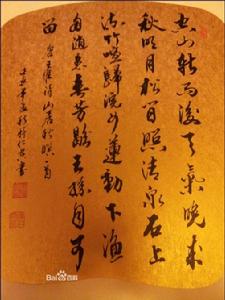 空山新雨後天氣晚來
秋明月松間照清泉石上
流竹喧歸浣女蓮動下漁
舟隨意春芳歇王孫自可
留
王維詩山居秋暝一首
書
Bai百科